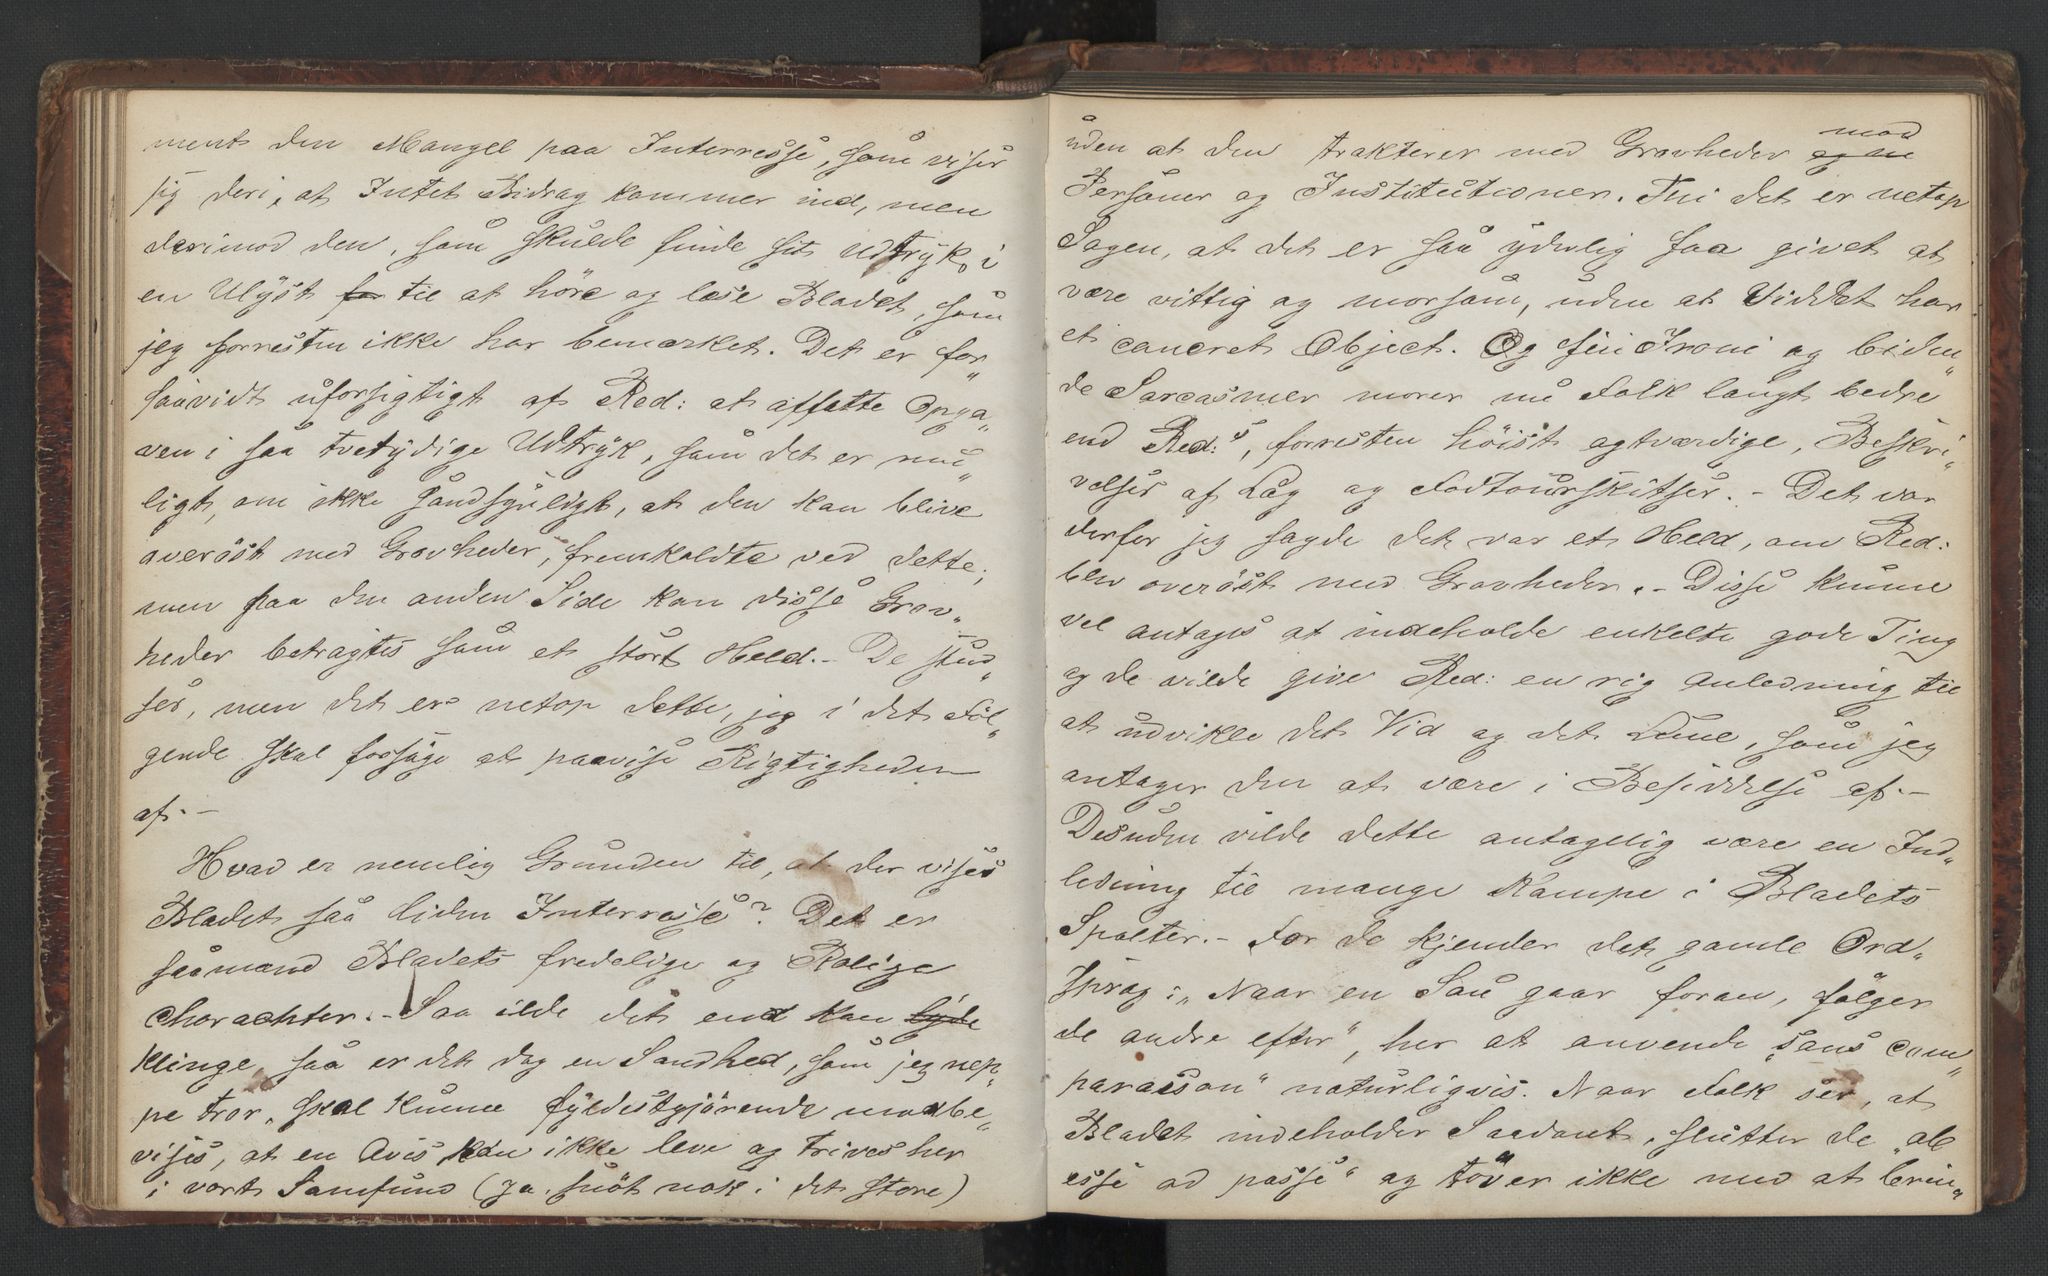 ment den Mangel paa Interresse, som viser
sig deri, at Intet Bidrag kommer ind, men
derimod den, som skulde finde sit Udtryk i
en Ulyst for til at höre og læse Bladet, som
jeg forresten ikke har bemærket. Det er for„
saavidt uforsigtigt af Red: at affatte Opga„
ven i saa tvetydige Udtryk, som det er mu„
ligt, om ikke sandsynligt, at den kan blive
overöst med Grovheder, fremkaldte ved dette;
men paa den anden Side kan disse Grov„
heder betragtes som et stort Held. – De stud„
ser, men det er netop dette, jeg i det Föl„
gende skal forsöge at paavise Rigtigheden
af. –
Hvad er nemlig Grunden til, at der vises
Bladet saa liden Interresse? Det er
saamænd Bladets fredelige og Rolige
Charachter. – Saa ilde det end kan lyde
klinge, saa er det dog en Sandhed, som jeg nep„
pe tror, skal kunne fyldestgjörende modbe„
vises, at en Avis kan ikke leve og trives her
i vort Samfund (ja. snöt nok i det store)
uden at den trakterer med Grovheder og en mod
Personer og Institutioner. Thi det er netop
Sagen, at det er saa yderlig faa givet at
være vittig og morsom, uden at Viddet har
et concret Object. Og fin Ironi og biden„
de Sarcasmer morer nu Folk langt bedre
end Red:s, forresten höist agtværdige, Beskri„
velser af Lag og Fodtourskitser. – Det var
derfor jeg sagde det var et Held, om Red:
blev overöst med Grovheder. – Disse kunne
vel antages at indeholde enkelte gode Ting
og de vilde give Red: en rig Anledning til
at udvikle det Vid og det Lune, som jeg
antager den at være i Besiddelse af. –
Desuden vilde dette antagelig være en Ind„
ledning til mange Kampe i Bladets
Spalter. – For De kjender det gamle Ord„
sprog: „Naar en Sau gaar foran, fölger
de andre efter“, her at anvende „sans com„
paraison“ naturligvis. Naar Folk ser, at
Bladet indeholder Saadant, slutter de „ab
esse ad posse“ og töver ikke med at brin„